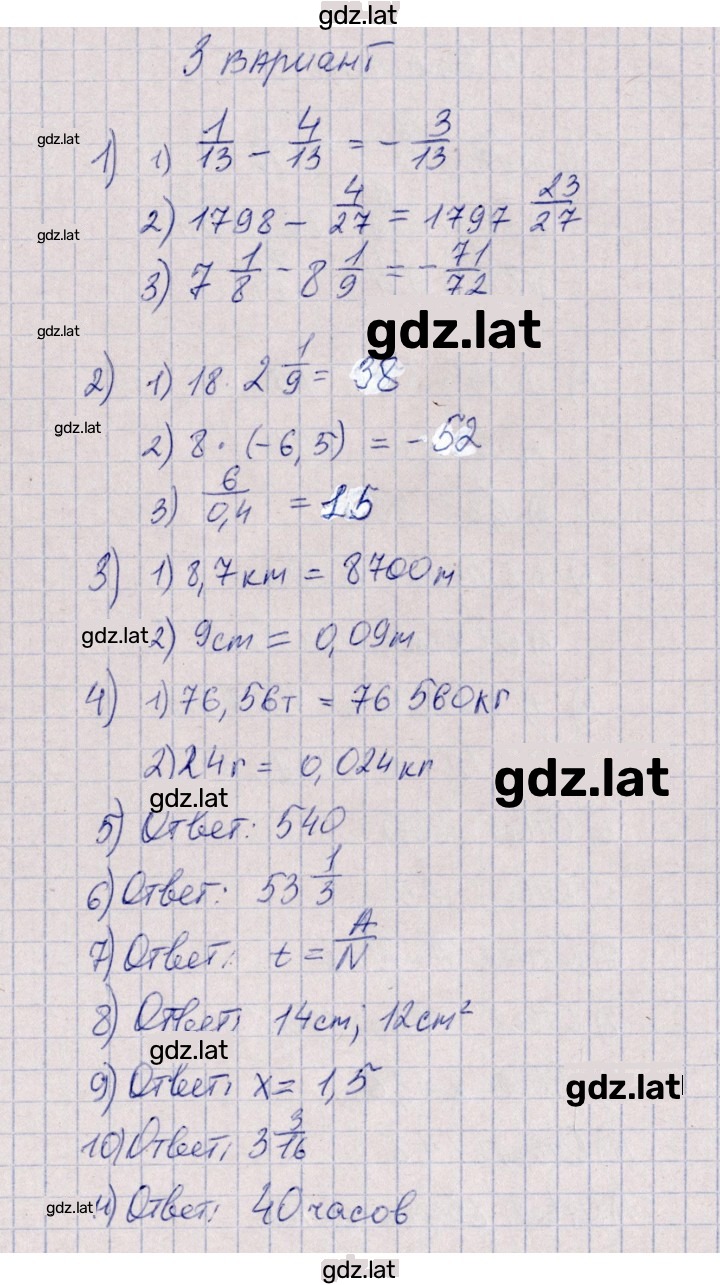 gdz.lat
3 вариант
gdz.lat
1) 1) 1/13 - 4/13 = - 3/13
gdz.lat
2) 1798 - 4/27 = 1797 23/27
3) 7 1/8 - 8 1/9 = - 71/72
gdz.lat
gdz.lat
2) 1) 18 · 2 1/9 = 38
gdz.lat
2) 8 · (-6,5) = -52
3) 6/0,4 = 15
3) 1) 8,7км = 8700м
gdz.lat
2) 9см = 0,09м
4) 1) 76,56т = 76 560кг
2) 24г = 0,024кг
gdz.lat
gdz.lat
5) Ответ: 540
6) Ответ: 53 1/3
7) Ответ: t = A/N
8) Ответ: 14см; 12см²
gdz.lat
9) Ответ: x = 1,5
gdz.lat
10) Ответ: 3 3/16
gdz.lat
11) Ответ: 40 часов
gdz.lat